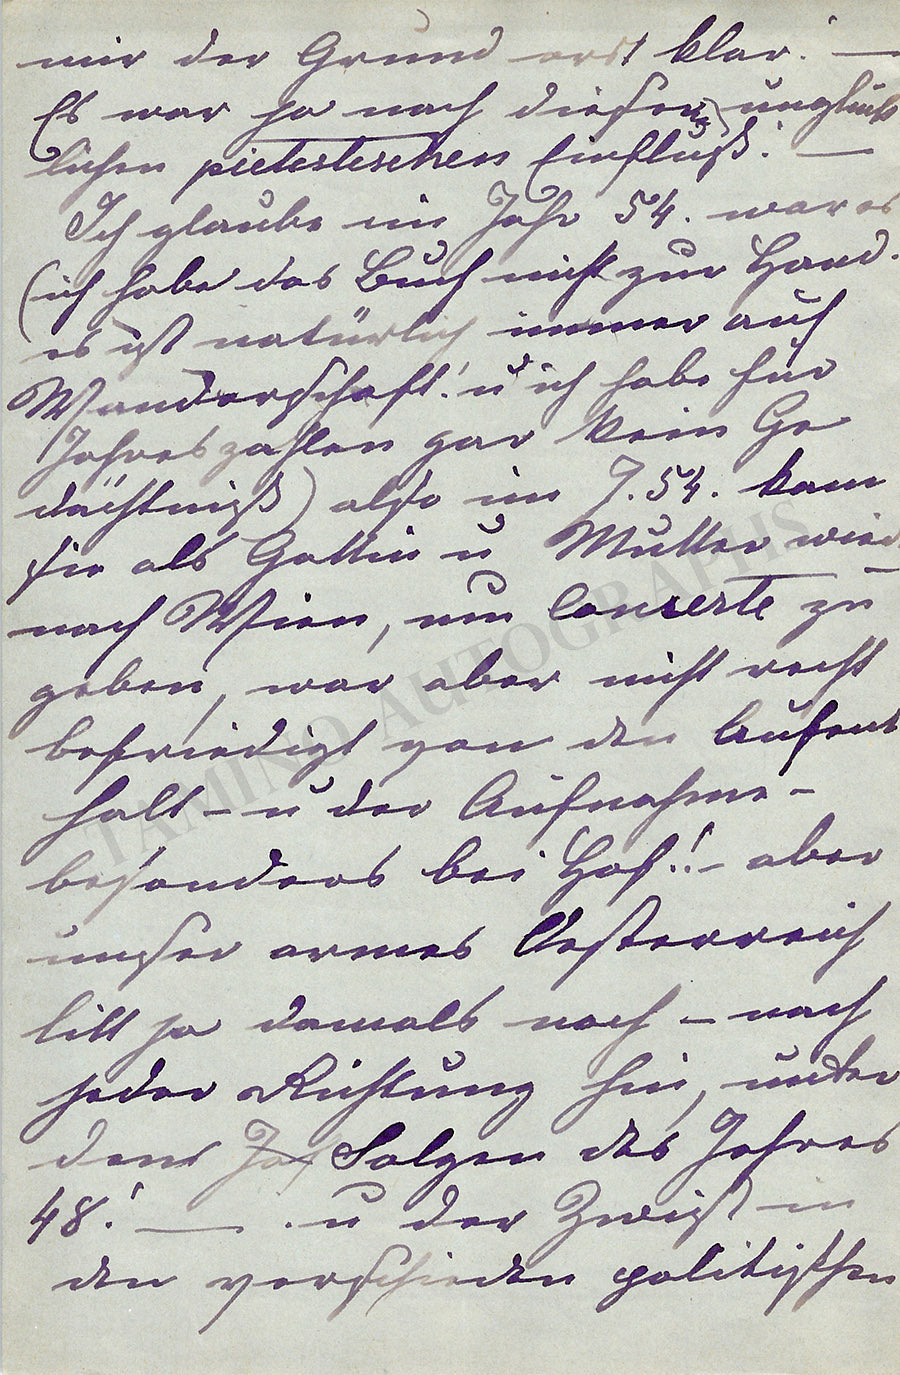 mir der Grund erst klar! —
Es war ja nach diesen unglück
lichen pietistischen Einfluß. —
Ich glaube im Jahr 54. war es
(ich habe das Buch nicht zur Hand.
es ist natürlich immer auf
Wanderschaft! u ich habe für
Jahreszahlen gar kein Ge
dächtniß) also im J. 54. kam
sie als Gattin u Mutter wied
nach Wien, um Conzerte zu
geben, war aber nicht recht
befriedigt von den Aufent
halt – u der Aufnahme –
besonders bei Hof!! – aber
unser armes Oesterreich
litt ja damals noch – nach
jeder Richtung hin, unter
den Folgen des Jahres
48! — . u der Zwist in
den verschieden politischen
TAMINO AUTOGRAPHS